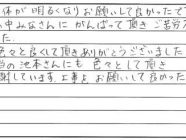 体が明るくなりお願いして良かったで
中みなさんにがんばって頂きご苦労
た.
色々と良くして頂きありがとうございました
当の池本さんにも色々として頂き
謝しています。お願いして良かった